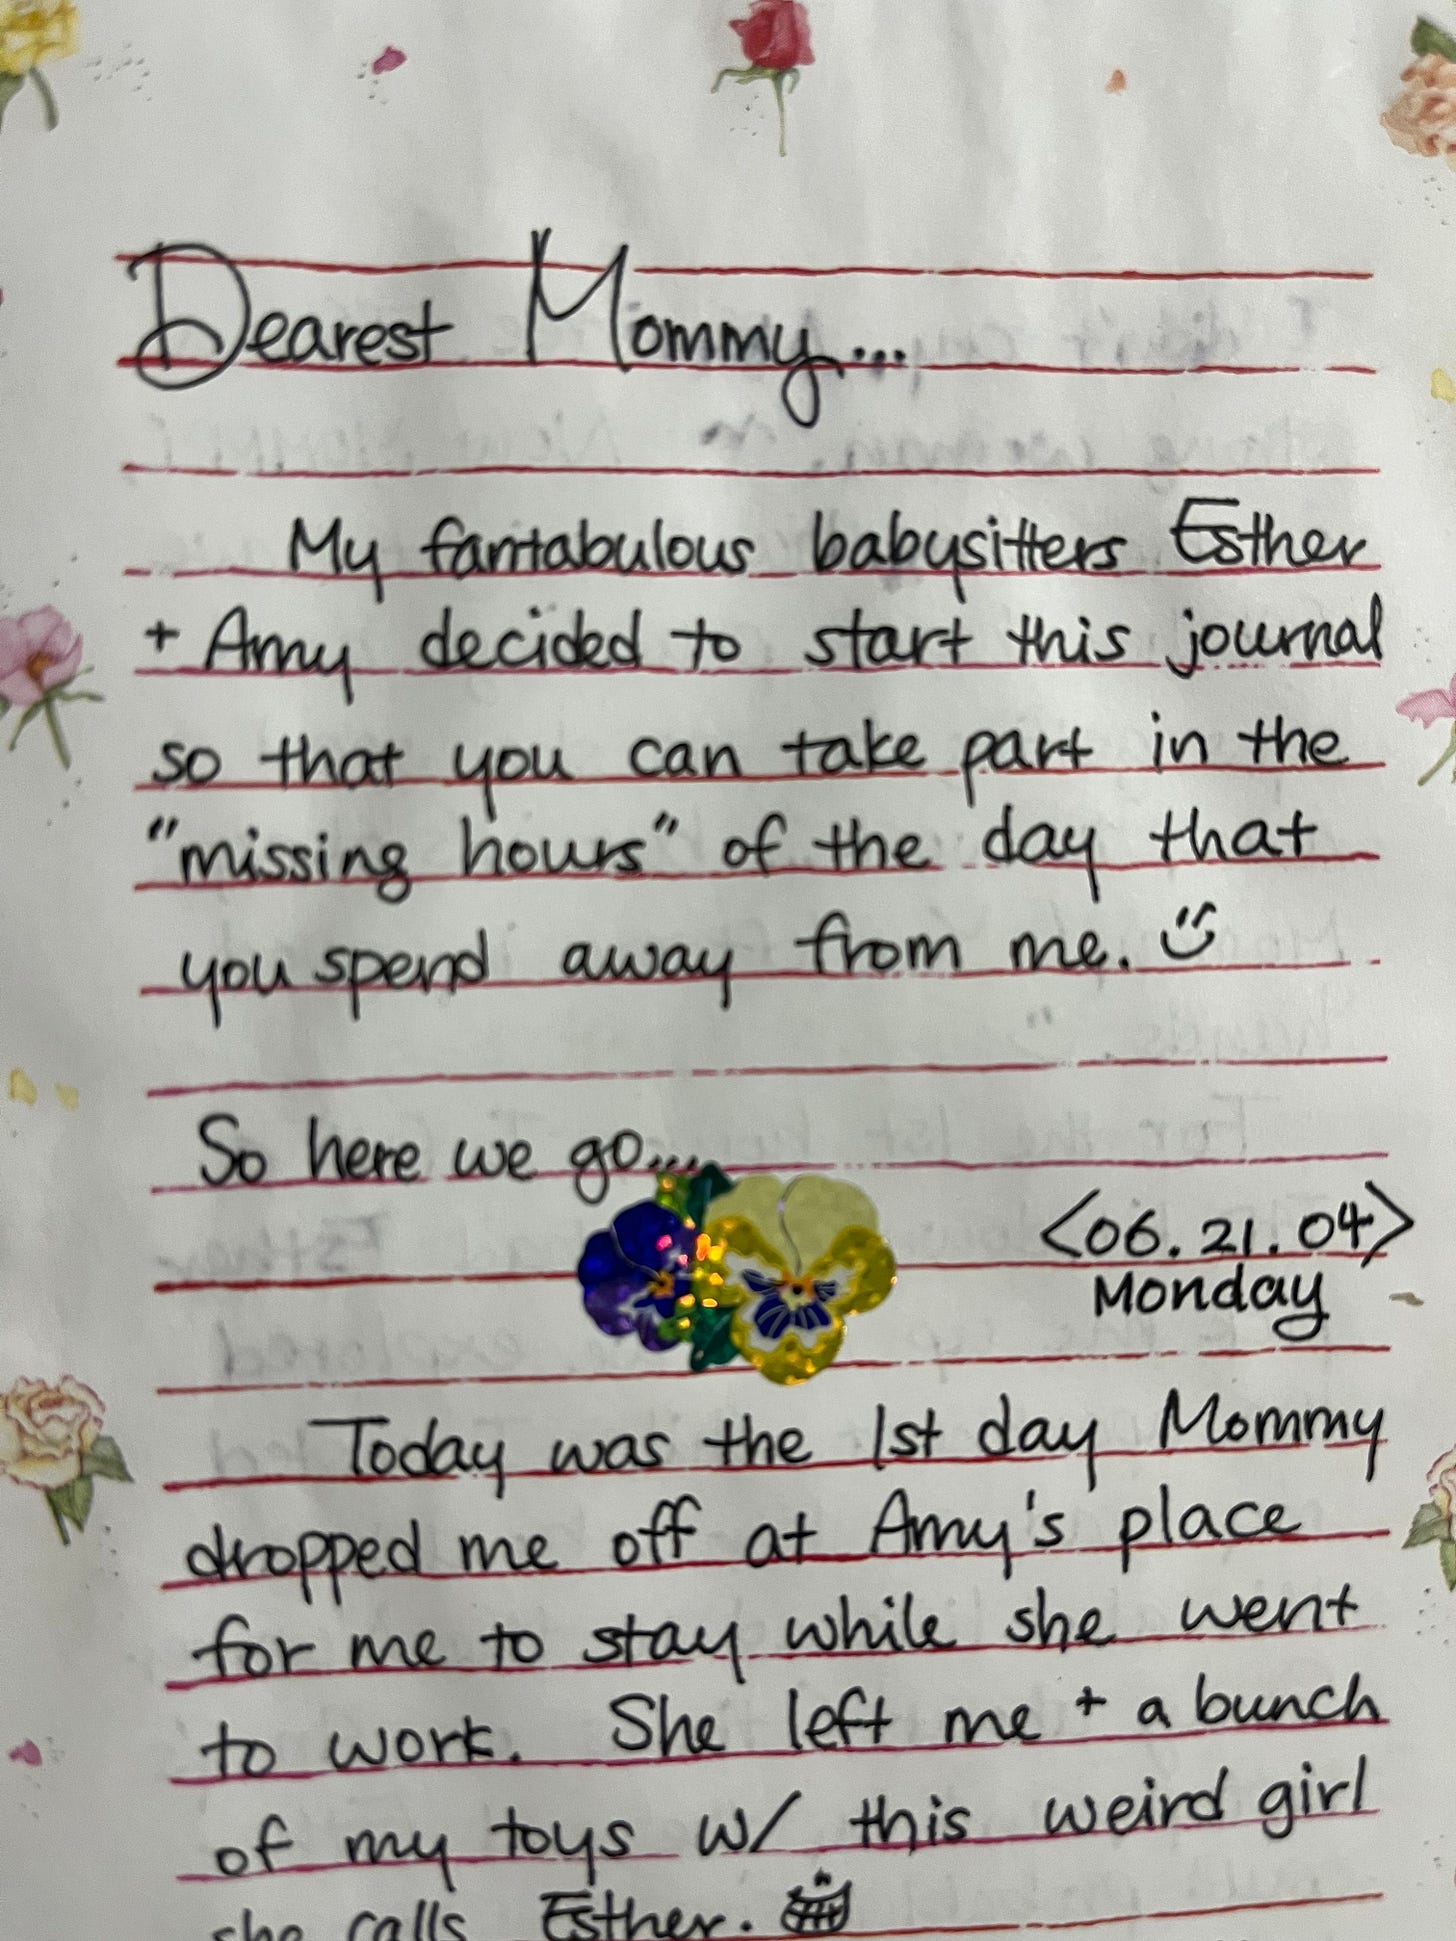 Dearest Mommy...
My fantabulous babysitters Esther
+ Amy decided to start this journal
so that you can take part in the
"missing hours" of the day that
you spend away from me.
So here we go...
<06.21.04>
Monday
Today was the 1st day Mommy
dropped me off at Amy's place
for me to stay while she went
to work. She left me + a bunch
of my toys w/ this weird girl
she calls Esther.